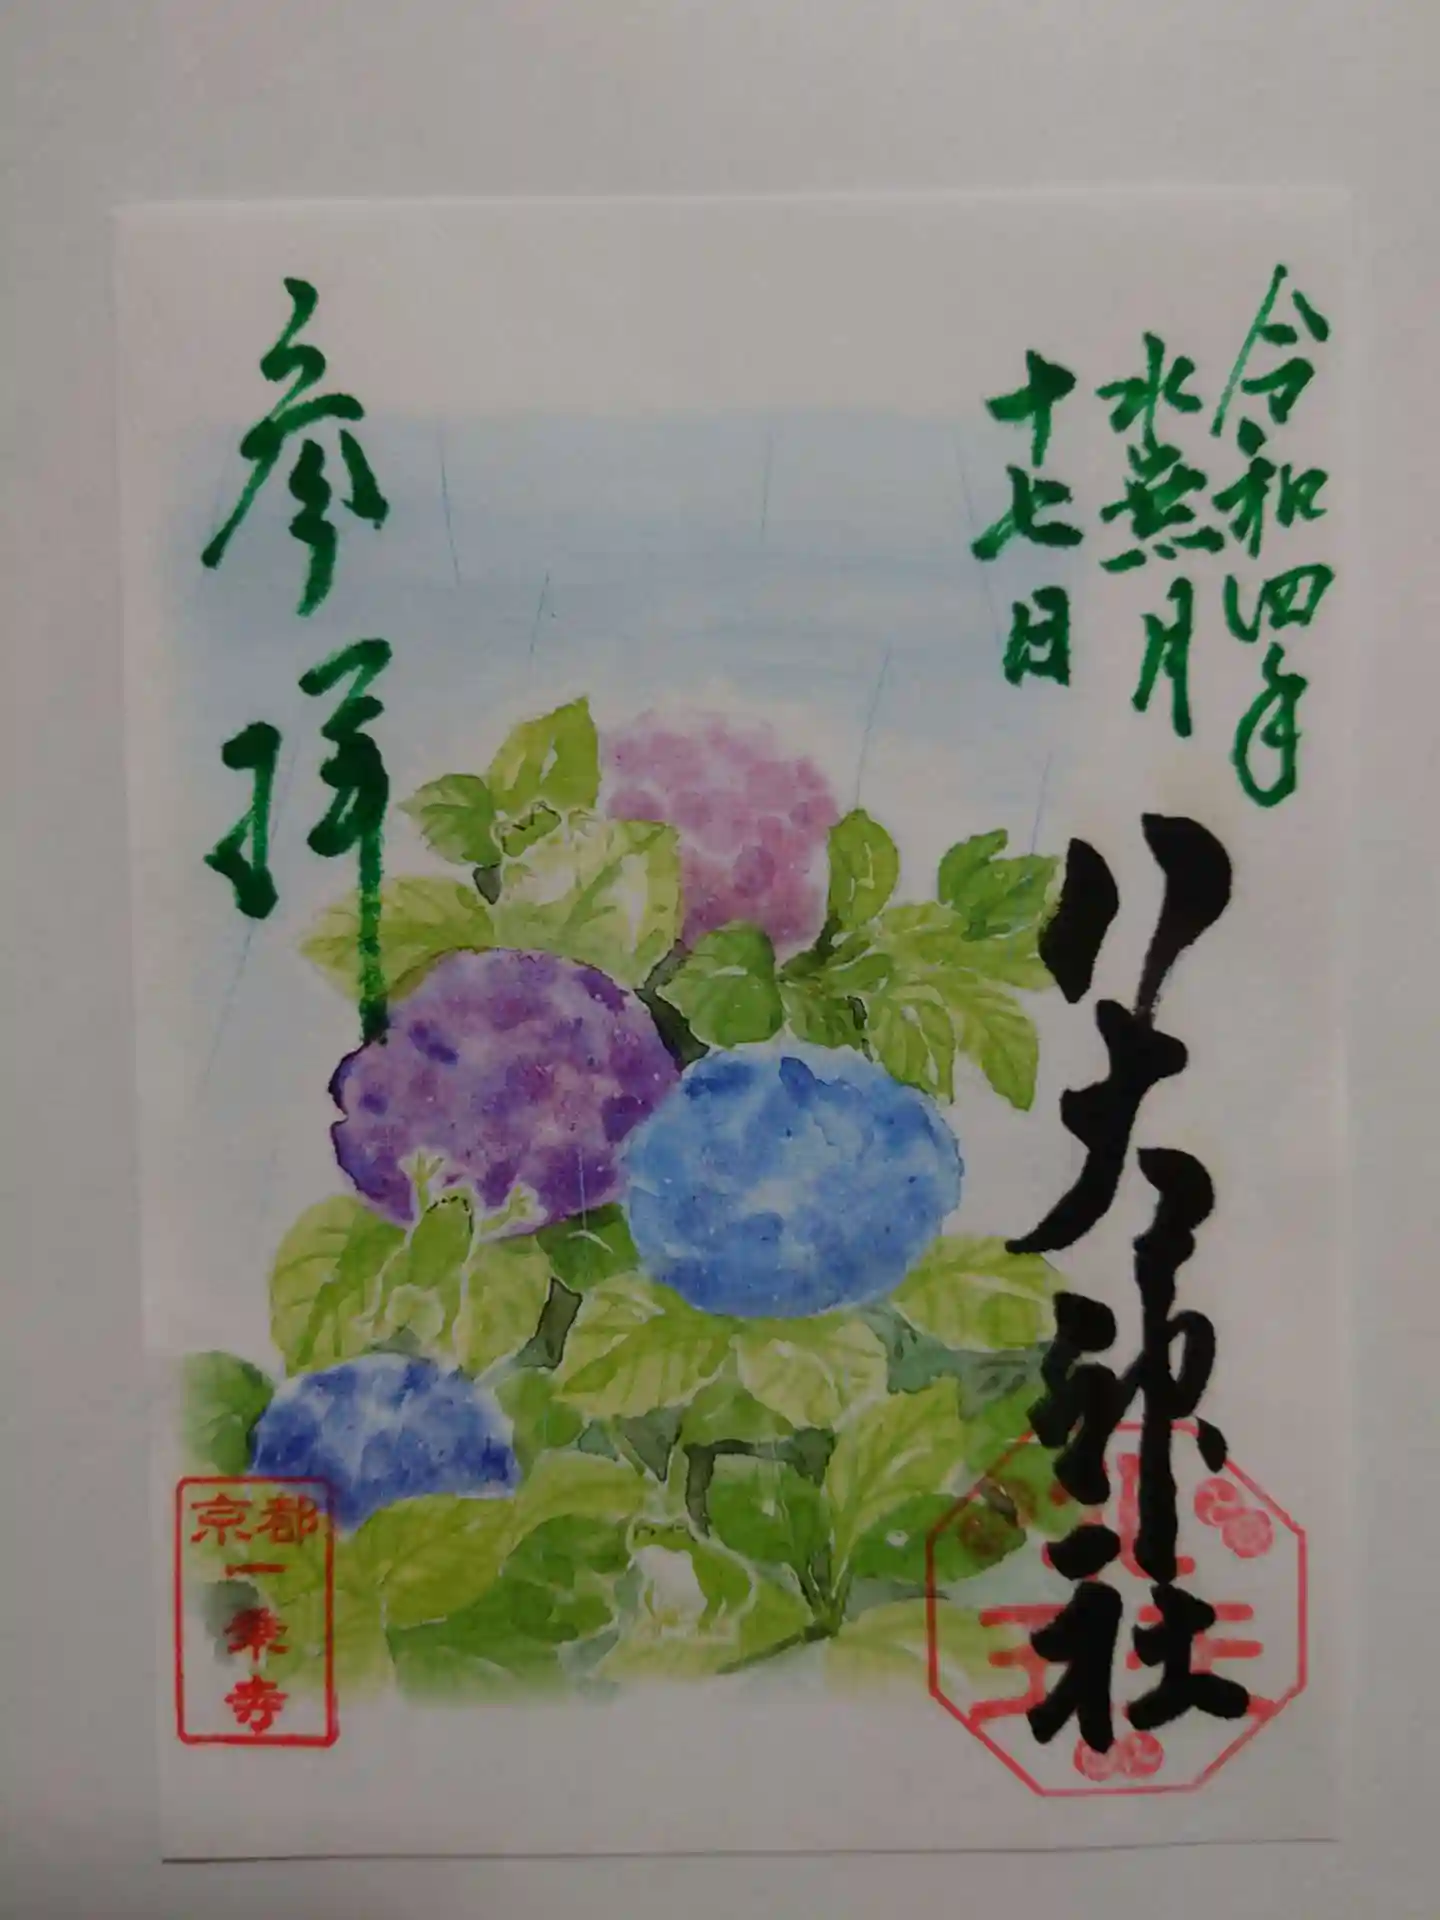 令和四年
水無月
十七日
八大神社
参拝
京都
一乗寺